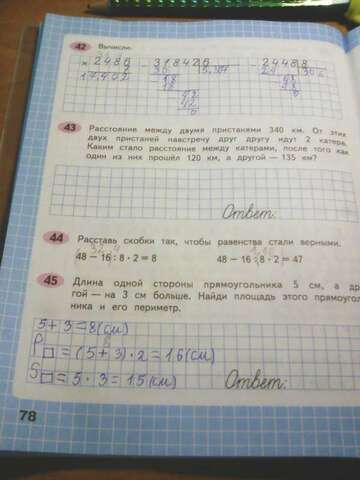 42 Вычисли.
43 Расстояние между двумя пристанями 340 км. От этих
двух пристаней навстречу друг другу идут 2 катера.
Каким стало расстояние между катерами, после того как
один из них прошёл 120 км, а другой — 135 км?
Ответ:
44 Расставь скобки так, чтобы равенства стали верными.
48 − 16 : 8 · 2 = 8 48 − 16 : 8 · 2 = 47
45 Длина одной стороны прямоугольника 5 см, а дру
гой — на 3 см больше. Найди площадь этого прямоугол
ника и его периметр.
5 + 3 = 8 (см)
P □ = (5 + 3) · 2 = 16 (см)
S □ = 5 · 3 = 15 (см) Ответ:
78